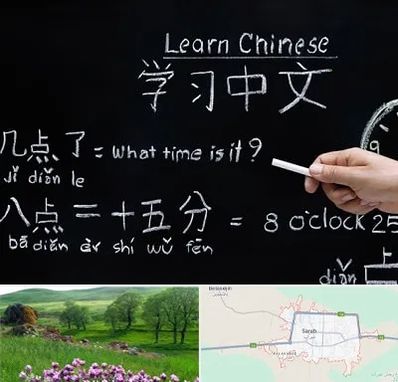 Learn Chinese
学习中文
几点了 = What time is it?
jǐ diǎn le
八点二十五分 = 8 o'clock 25
bā diǎn èr shí wǔ fēn
上
diǎn
Sarab